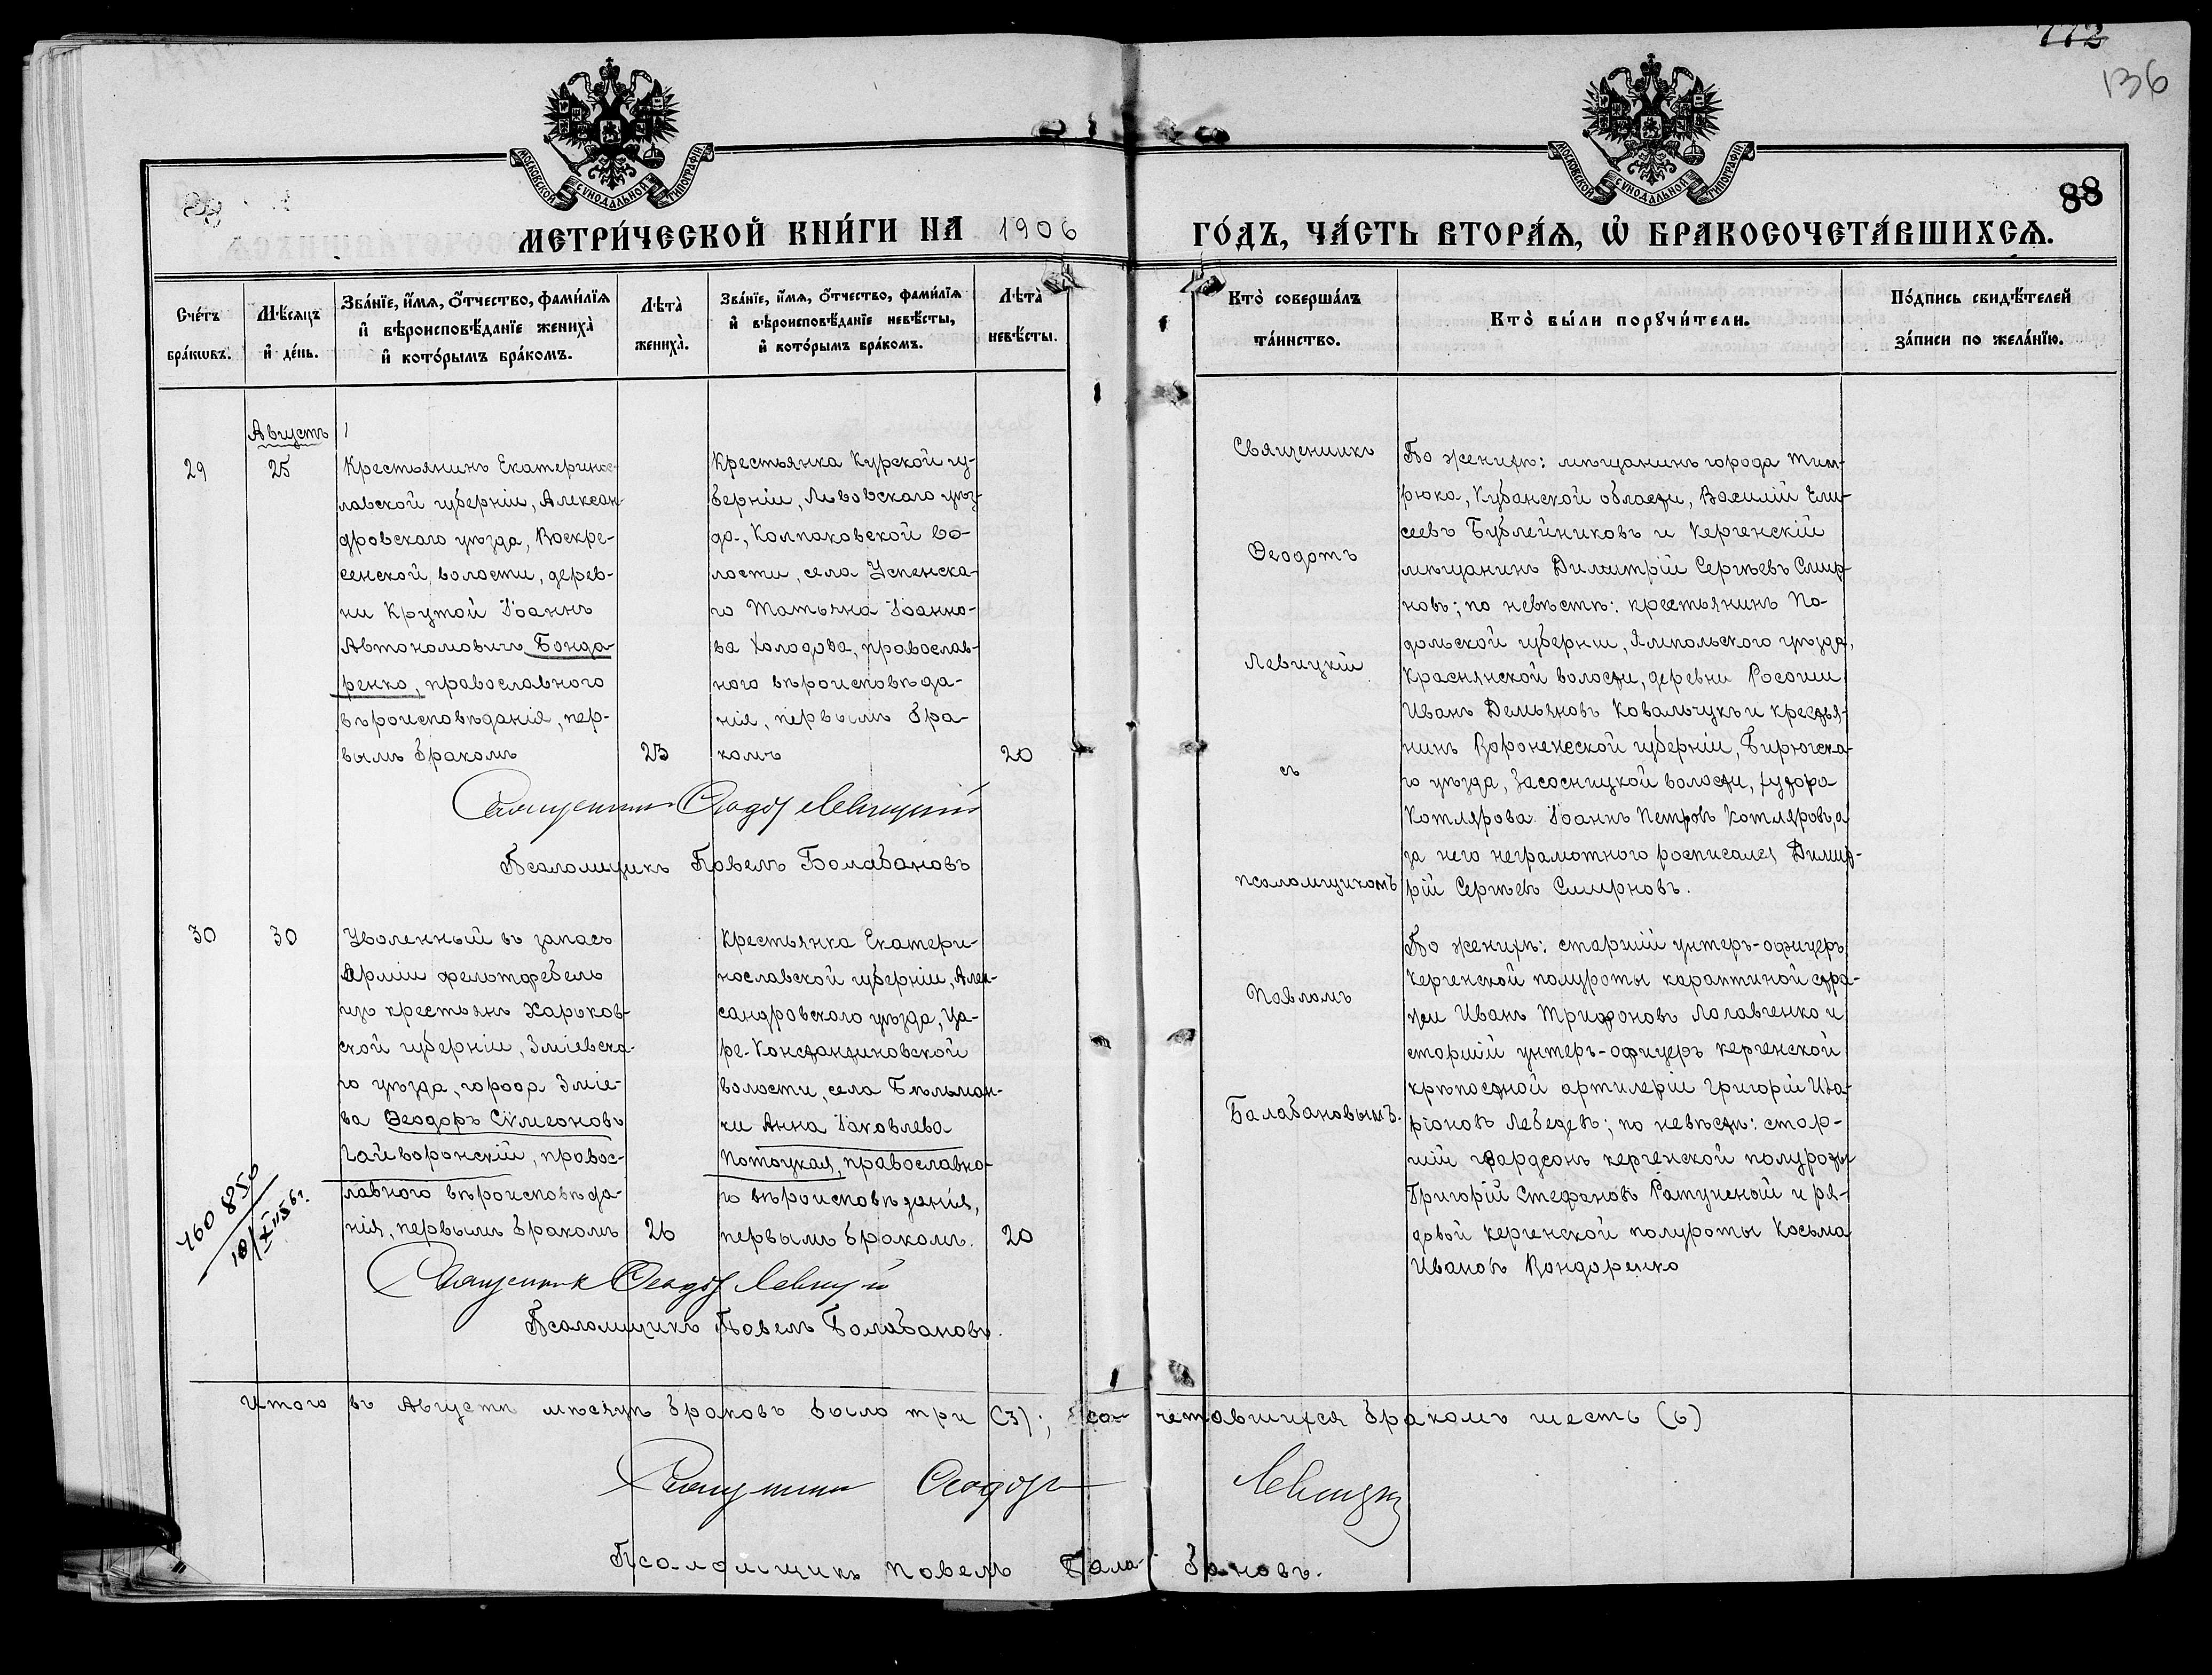 772
136
88
МОСКОВСКОЙ СУНОДАЛЬНОЙ ТИПОГРАФІИ
МОСКОВСКОЙ СУНОДАЛЬНОЙ ТИПОГРАФІИ
МЕТРИ́ЧЕСКОЙ КНИ́ГИ НА 1906 ГО́ДЪ, ЧА́СТЬ ВТОРА́Ѧ, Ѽ БРАКОСОЧЕТА́ВШИХСѦ.
Сче́тъ
бра́кѡвъ.
Мѣ́сѧцъ
и҆ де́нь.
Зва́нїе, и҆́мѧ, ѻ҆́тчество, фами́лїѧ
и҆ вѣроисповѣ́данїе жениха̀
и҆ кото́рымъ бра́комъ.
Лѣта̀
жениха̀.
Зва́нїе, и҆́мѧ, ѻ҆́тчество, фами́лїѧ
и҆ вѣроисповѣ́данїе невѣ́сты,
и҆ кото́рымъ бра́комъ.
Лѣта̀
невѣ́сты.
Кто̀ соверша́лъ
та́инство.
Кто̀ бы́ли порꙋчи́тели.
По́дпись свидѣ́телей
за́писи по жела́нїю.
Августъ
29
25
Крестьянинъ Екатеринос-
лавской губерніи, Алексан-
дровскаго уѣзда, Воскре-
сенской волости, дерев-
ни Крутой Іоаннъ
Автономовичъ Бонда-
ренко, православнаго
вѣроисповѣданія, пер-
вымъ бракомъ
25
Крестьянка Курской гу-
берніи, Львовскаго уѣз-
да, Колпаковской во-
лости, села Успенска-
го Татьяна Іоанно-
ва Холодова, православ-
наго вѣроисповѣда-
нія, первымъ бра-
комъ
20
Священникъ Ѳеодотъ Левицкій
Псаломщикъ Павелъ Балабановъ
Священникъ
Ѳеодотъ
Левицкій
съ
псаломщикомъ
Павломъ
Балабановымъ.
По женихѣ: мѣщанинъ города Тем-
рюка, Кубанской области, Василій Ели-
сеевъ Бублейниковъ и Керченскій
мѣщанинъ Димитрій Сергѣевъ Смир-
новъ; по невѣстѣ: крестьянинъ По-
дольской губерніи, Ямпольскаго уѣзда,
Краснянской волости, деревни Россоши
Иванъ Демьяновъ Ковальчукъ и крестья-
нинъ Воронежской губерніи, Бирюческа-
го уѣзда, Засосницкой волости, хутора
Котлярова Іоаннъ Петровъ Котляровъ, а
за него неграмотнаго росписался Димит-
рій Сергѣевъ Смирновъ.
30
30
Уволенный въ запасъ
Арміи фельтфебель
изъ крестьянъ Харьков-
ской губерніи, Зміевска-
го уѣзда, города Зміе-
ва Ѳеодоръ Сѵмеоновъ
Гайворонскій, правос-
лавнаго вѣроисповѣда-
нія, первымъ бракомъ
26
Крестьянка Екатери-
нославской губерніи, Алек-
сандровскаго уѣзда, Ца-
ре-Константиновской
волости, села Бѣльман-
ки Анна Іаковлева
Потоцкая, православна-
го вѣроисповѣданія,
первымъ бракомъ.
20
По женихѣ: старшій унтеръ-офицеръ
Керченской полуроты карантиной стра-
жи Иванъ Трифоновъ Лолавченко и
старшій унтеръ-офицеръ керченской
крѣпостной артилеріи Григорій Ила-
ріоновъ Лебедевъ; по невѣстѣ: стар-
шій гвардеонъ керченской полуроты
Григорій Стефановъ Ратушный и ря-
довой керченской полуроты Косьма
Ивановъ Бондаренко
Священникъ Ѳеодотъ Левицкій
Псаломщикъ Павелъ Балабановъ.
Итого въ Августѣ мѣсяцѣ браковъ было три (3); со- четавшихся бракомъ шесть (6)
Священникъ Ѳеодотъ Левицкій
Псаломщикъ Павелъ Бала- бановъ.